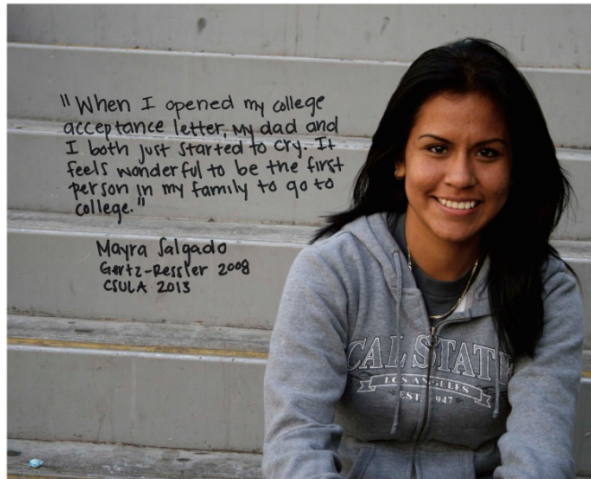 "When I opened my college
acceptance letter, my dad and
I both just started to cry. It
feels wonderful to be the first
person in my family to go to
college."
Mayra Salgado
Gertz-Ressler 2008
CSULA 2013
CAL STATE
LOS ANGELES
EST. 1947